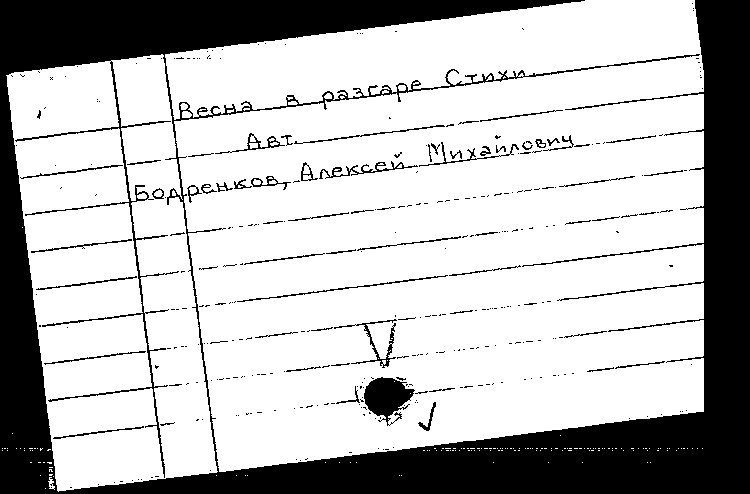 Весна в разгаре Стихи.
Авт.
Бодренков, Алексей Михайлович